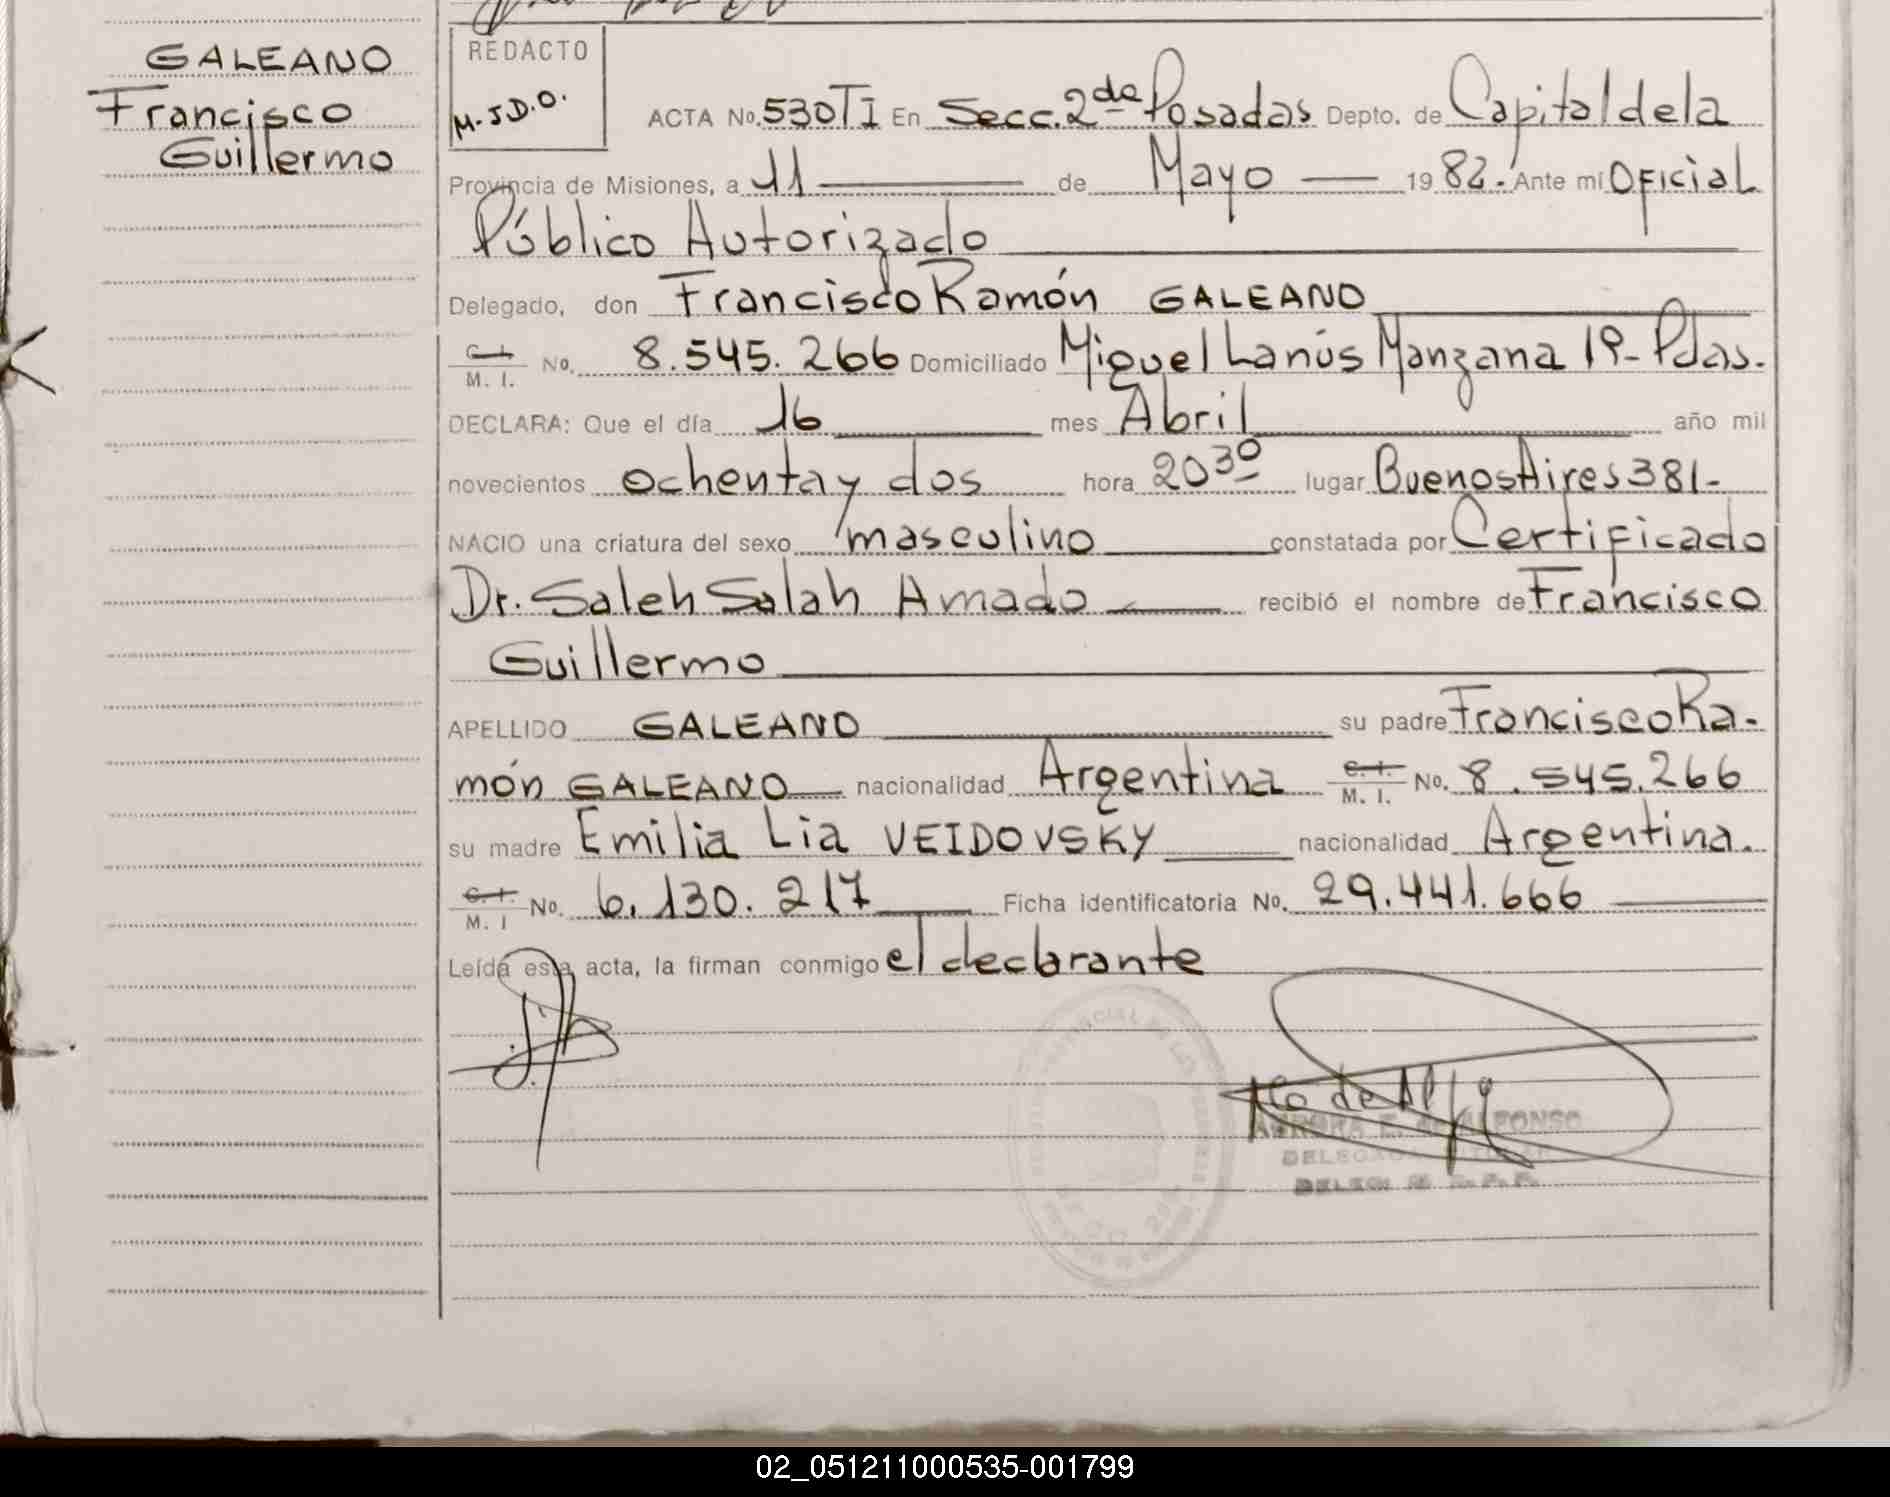 GALEANO
Francisco
Guillermo
REDACTO
M.J.D.O.
ACTA No. 530TI En Secc. 2da Posadas Depto. de Capital de la
Provincia de Misiones, a 11 de Mayo 1982. Ante mi Oficial
Público Autorizado
Delegado, don Francisco Ramón GALEANO
C.I. M. I. No. 8.545.266 Domiciliado Miguel Lanús Manzana 19- Pdas.
DECLARA: Que el día 16 mes Abril año mil
novecientos ochenta y dos hora 20 30 lugar Buenos Aires 381-
NACIO una criatura del sexo masculino constatada por Certificado
Dr. Saleh Salah Amado recibió el nombre de Francisco
Guillermo
APELLIDO GALEANO su padre Francisco Ra-
món GALEANO nacionalidad Argentina C.I. M. I. No. 8.545.266
su madre Emilia Lia VEIDOVSKY nacionalidad Argentina.
C.I. M. I No. 6.130.217 Ficha identificatoria No. 29.441.666
Leída esta acta, la firman conmigo el declarante
02_051211000535-001799